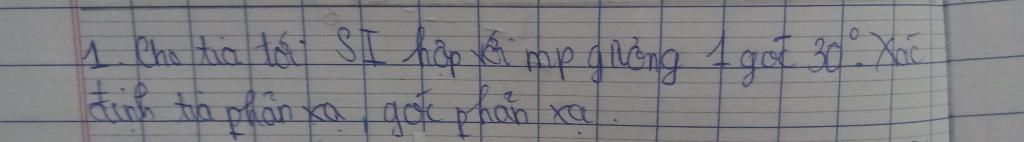 1. Cho tia tới SI hợp với mp gương 1 góc 30°. Xác
định tia phản xạ, góc phản xạ.